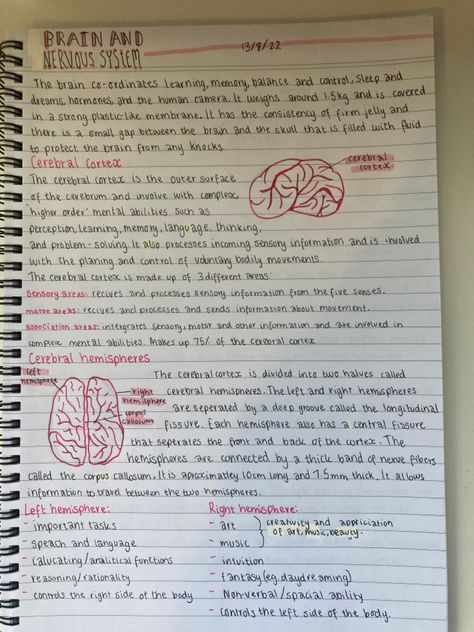 BRAIN AND
NERVOUS SYSTEM
13/8/22
The brain co-ordinates learning, memory, balance and control, sleep and
dreams, hormones, and the human camera. It weighs around 1.5kg and is covered
in a strong plastic-like membrane. It has the consistency of firm jelly and
there is a small gap between the brain and the skull that is filled with fluid
to protect the brain from any knocks.
Cerebral cortex
cerebral
cortex
The cerebral cortex is the outer surface
of the cerebrum and involve with complex
'higher order' mental abilities such as
perception, learning, memory, language, thinking,
and problem-solving. It also processes incoming sensory information and is involved
with the planing and control of voluntary bodily movements.
The cerebral cortex is made up of 3 different areas:
sensory areas: recives and processes sensory information from the five senses.
motor areas: recives and processes and sends information about movement.
association areas: intergrates sensory, motor and other information and are involved in
complex mental abilities. Makes up 75% of the cerebral cortex
Cerebral hemispheres
left
hemisphere
right
hemisphere
corpus
callosum
The cerebral cortex is divided into two halves called
cerebral hemispheres. The left and right hemispheres
are seperated by a deep groove called the longitudinal
fissure. Each hemisphere also has a central fissure
that seperates the front and back of the cortex. The
hemispheres are connected by a thick band of nerve fibers
called the corpus callosum. It is aproximatley 10cm long and 7.5mm thick. It allows
information to travel between the two hemispheres.
Left hemisphere:
- important tasks
- speach and language
- calucating/analitical functions
- reasoning/rationality
- controls the right side of the body
Right hemisphere:
- art
- music
creativity and appriciation
of art, music, beauty.
- intuition
- fantasy (eg. daydreaming)
- Non-verbal/spacial ability
- controls the left side of the body.